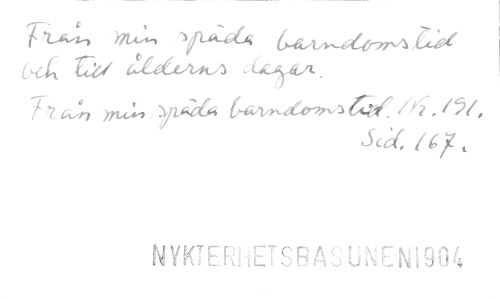 Från min späda barndomstid
och till ålderns dagar.
Från min späda barndomstid. Nr. 191.
Sid. 167.
NYKTERHETSBASUNEN1904